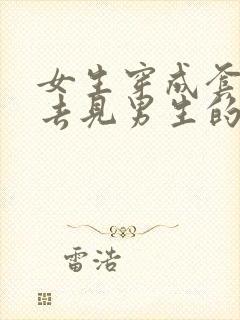 女生穿成套
去见男生的
雷浩